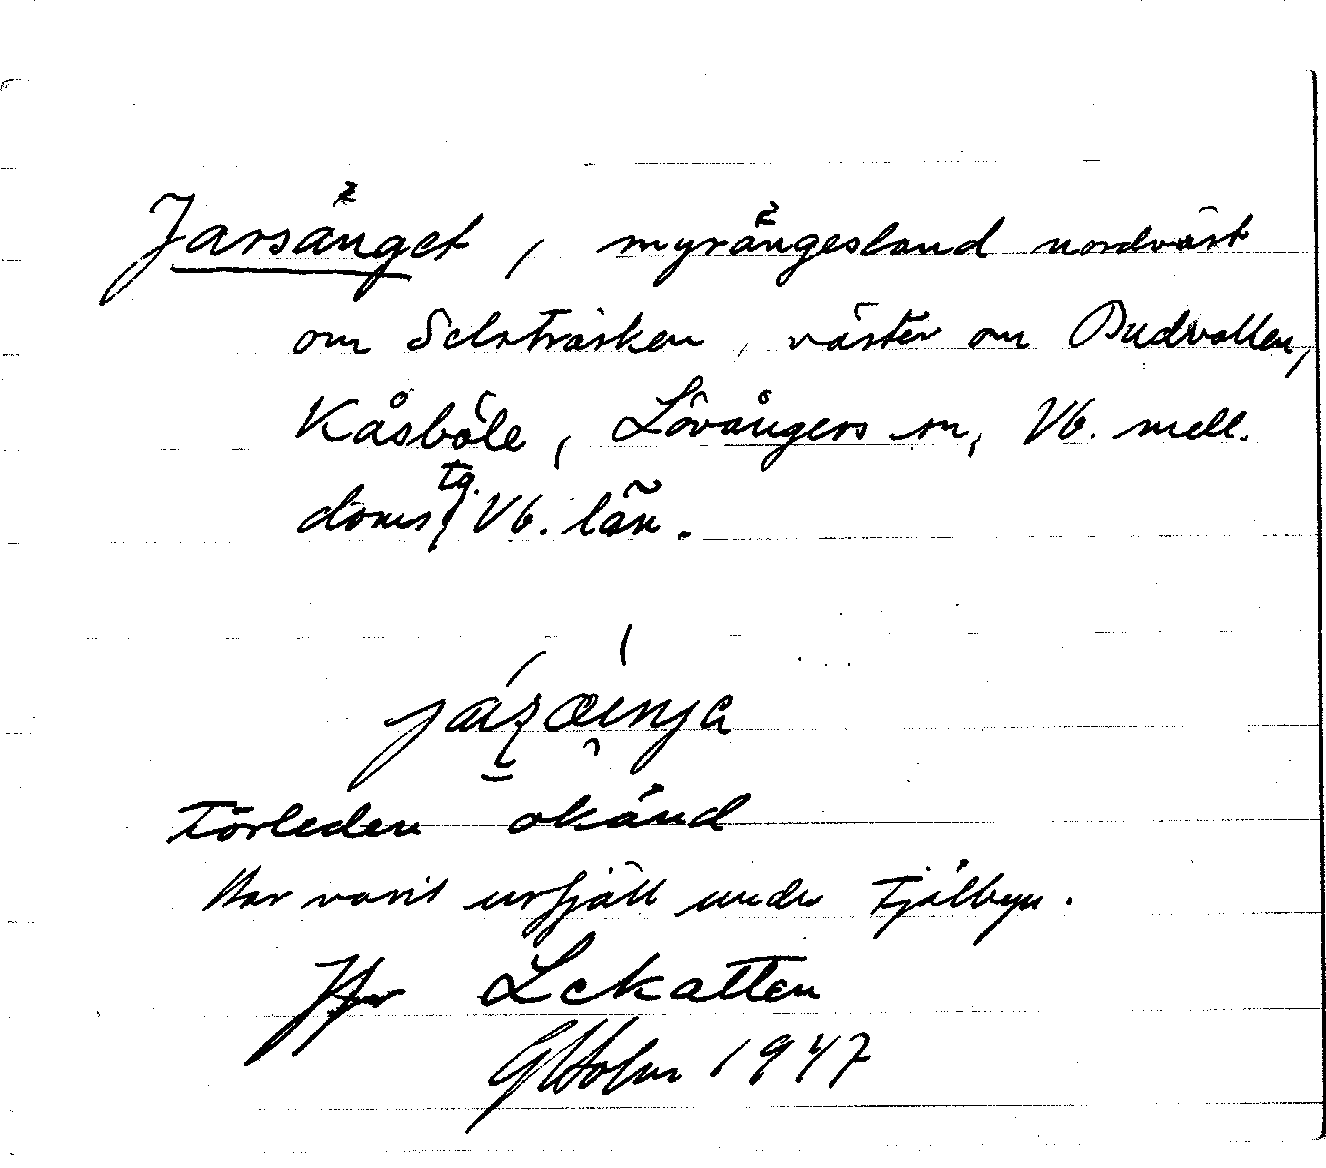 Jarsänget, myrängesland nordväst
om Selsträsken, väster om Budvallen,
Kåsböle, Lövångers sn, Vb. mell.
doms tg. Vb. län.
Förleden okänd
Har varit urfjäll under Fjälbyn.
Jfr Lekatten
G Holm 1947